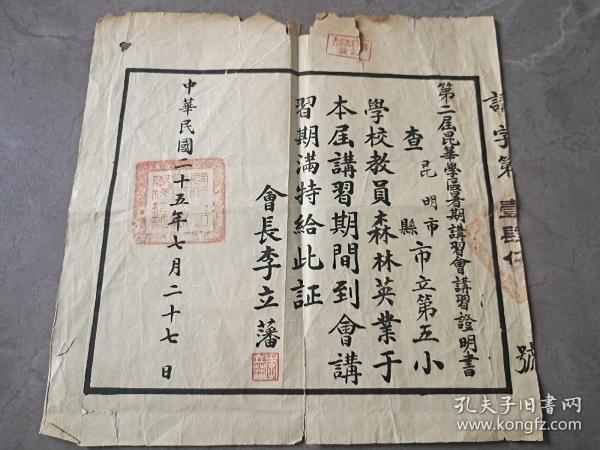 講字第壹肆伍號
第二屆昆華學區暑期講習會講習證明書
查昆明市縣市立第五小
學校教員森林英業于
本屆講習期間到會講
習期滿特給此証
會長李立藩
中華民國二十五年七月二十七日
孔夫子旧书网
www.kongfz.com